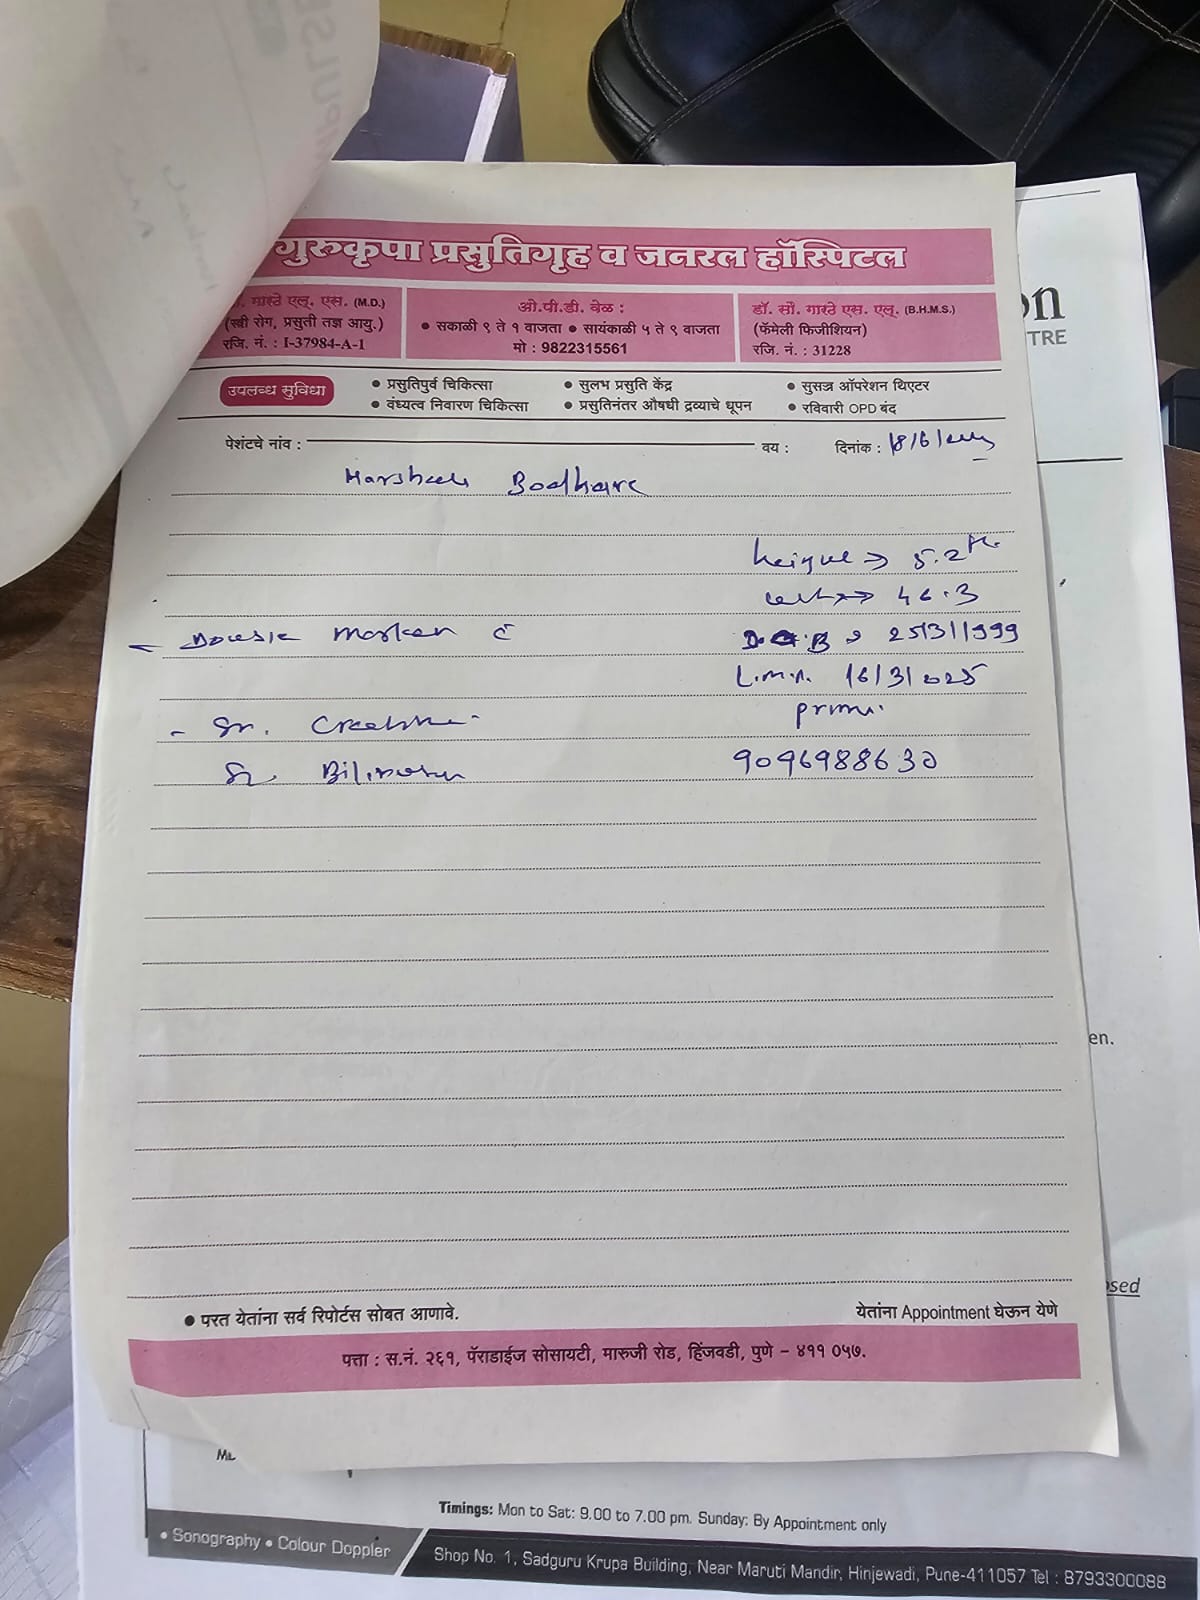 गुरुकृपा प्रसुतिगृह व जनरल हॉस्पिटल
. गारठे एल्. एस. (M.D.)
(स्त्री रोग, प्रसुती तज्ञ आयु.)
रजि. नं. : I-37984-A-1
ओ.पी.डी. वेळ :
• सकाळी ९ ते १ वाजता • सायंकाळी ५ ते ९ वाजता
मो : 9822315561
डॉ. सौ. गारठे एस. एल्. (B.H.M.S.)
(फॅमेली फिजीशियन)
रजि. नं. : 31228
उपलब्ध सुविधा
• प्रसुतिपुर्व चिकित्सा
• वंध्यत्व निवारण चिकित्सा
• सुलभ प्रसुति केंद्र
• प्रसुतिनंतर औषधी द्रव्याचे धूपन
• सुसज्ज ऑपरेशन थिएटर
• रविवारी OPD बंद
पेशंटचे नांव : वय : दिनांक : 18/6/
Bodhare
→ 5.2 ft.
→ 46.3
- Marker c̄
D.O.B → 25/3/1999
L.M.P. 16/3/2025
- Sr.
primi.
Sr. Bilirubin
9096988630
• परत येतांना सर्व रिपोर्टस सोबत आणावे.
येतांना Appointment घेऊन येणे
पत्ता : स.नं. २६१, पॅराडाईज सोसायटी, मारुजी रोड, हिंजवडी, पुणे - ४११ ०५७.
on
TRE
en.
osed
Timings: Mon to Sat: 9.00 to 7.00 pm. Sunday: By Appointment only
• Sonography • Colour Doppler
Shop No. 1, Sadguru Krupa Building, Near Maruti Mandir, Hinjewadi, Pune-411057 Tel : 8793300088